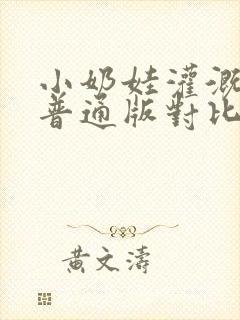 小奶娃灌溉
普通版對比
黃文濤